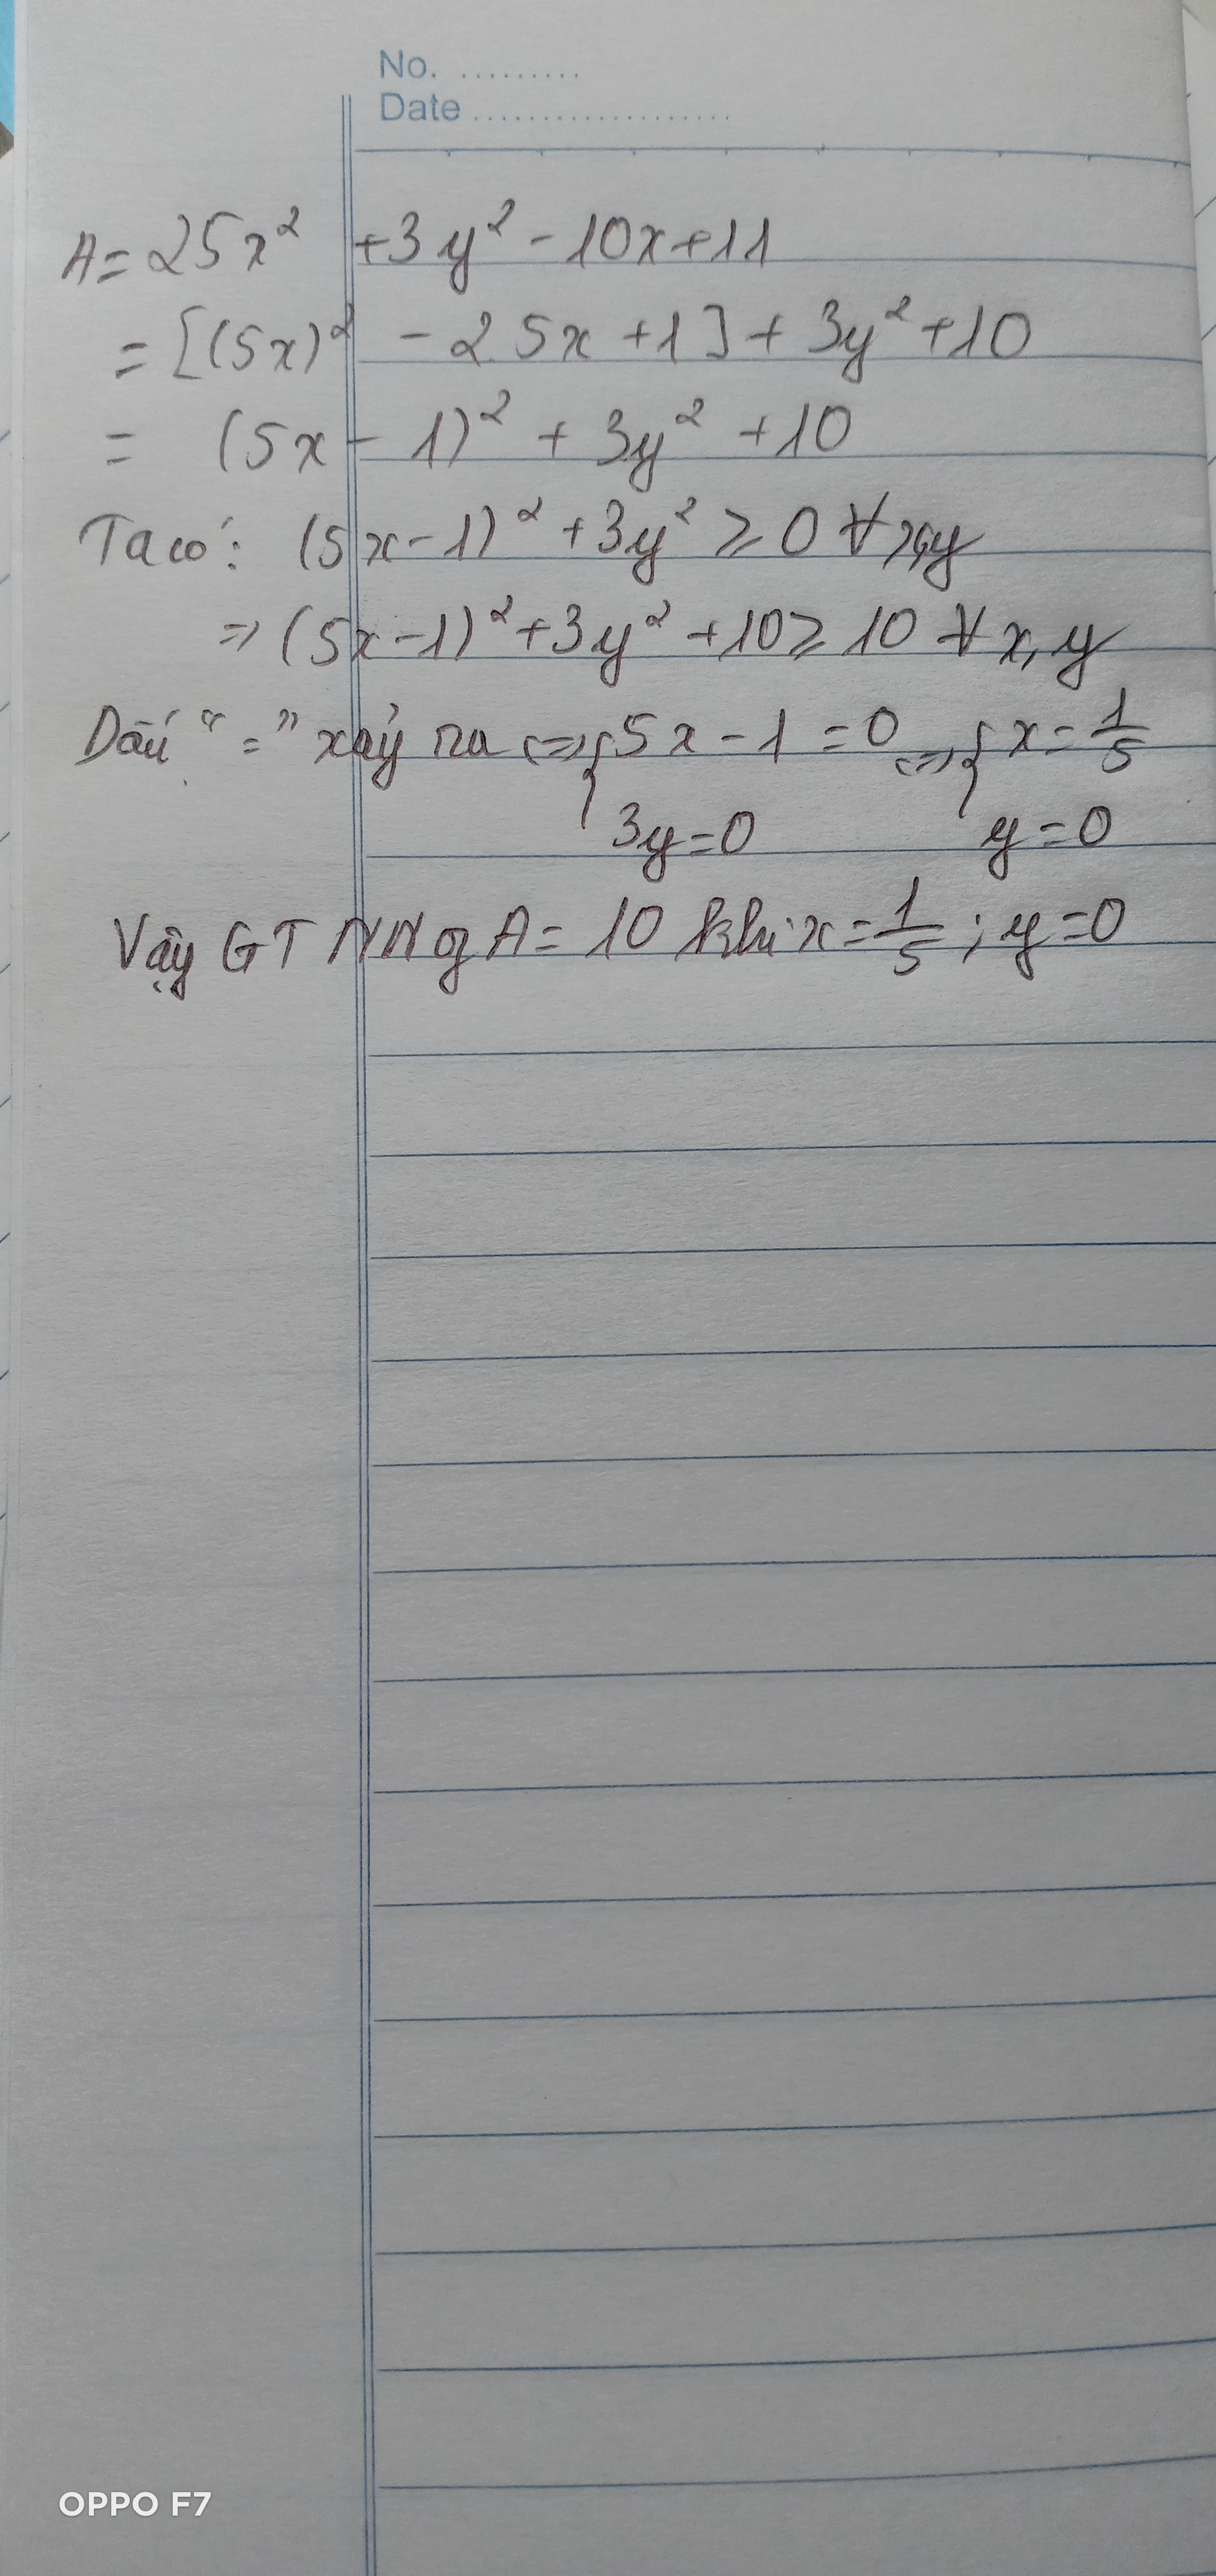 No. .........
Date ...................
A = 25x² + 3y² - 10x + 11
= [(5x)² - 2.5x + 1] + 3y² + 10
= (5x - 1)² + 3y² + 10
Ta có: (5x - 1)² + 3y² ≥ 0 ∀ x,y
=> (5x - 1)² + 3y² + 10 ≥ 10 ∀ x, y
Dấu "=" xảy ra <=> { 5x - 1 = 0 <=> { x = 1/5
3y = 0 y = 0
Vậy GTNN A = 10 khi x = 1/5 ; y = 0
OPPO F7